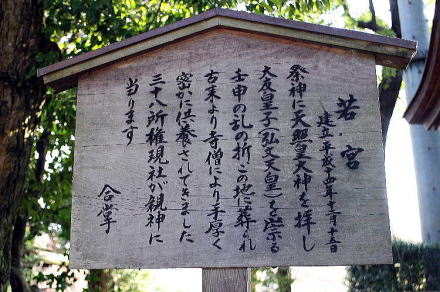 若宮
建立 平成十年十二月十五日
祭神に天照皇大神を拝し
大友皇子(弘文天皇)を崇る
壬申の乱の折この地に葬られ
古来より寺僧により手厚く
密かに供養されてきました
三十八所権現社が親神に
当ります
合掌